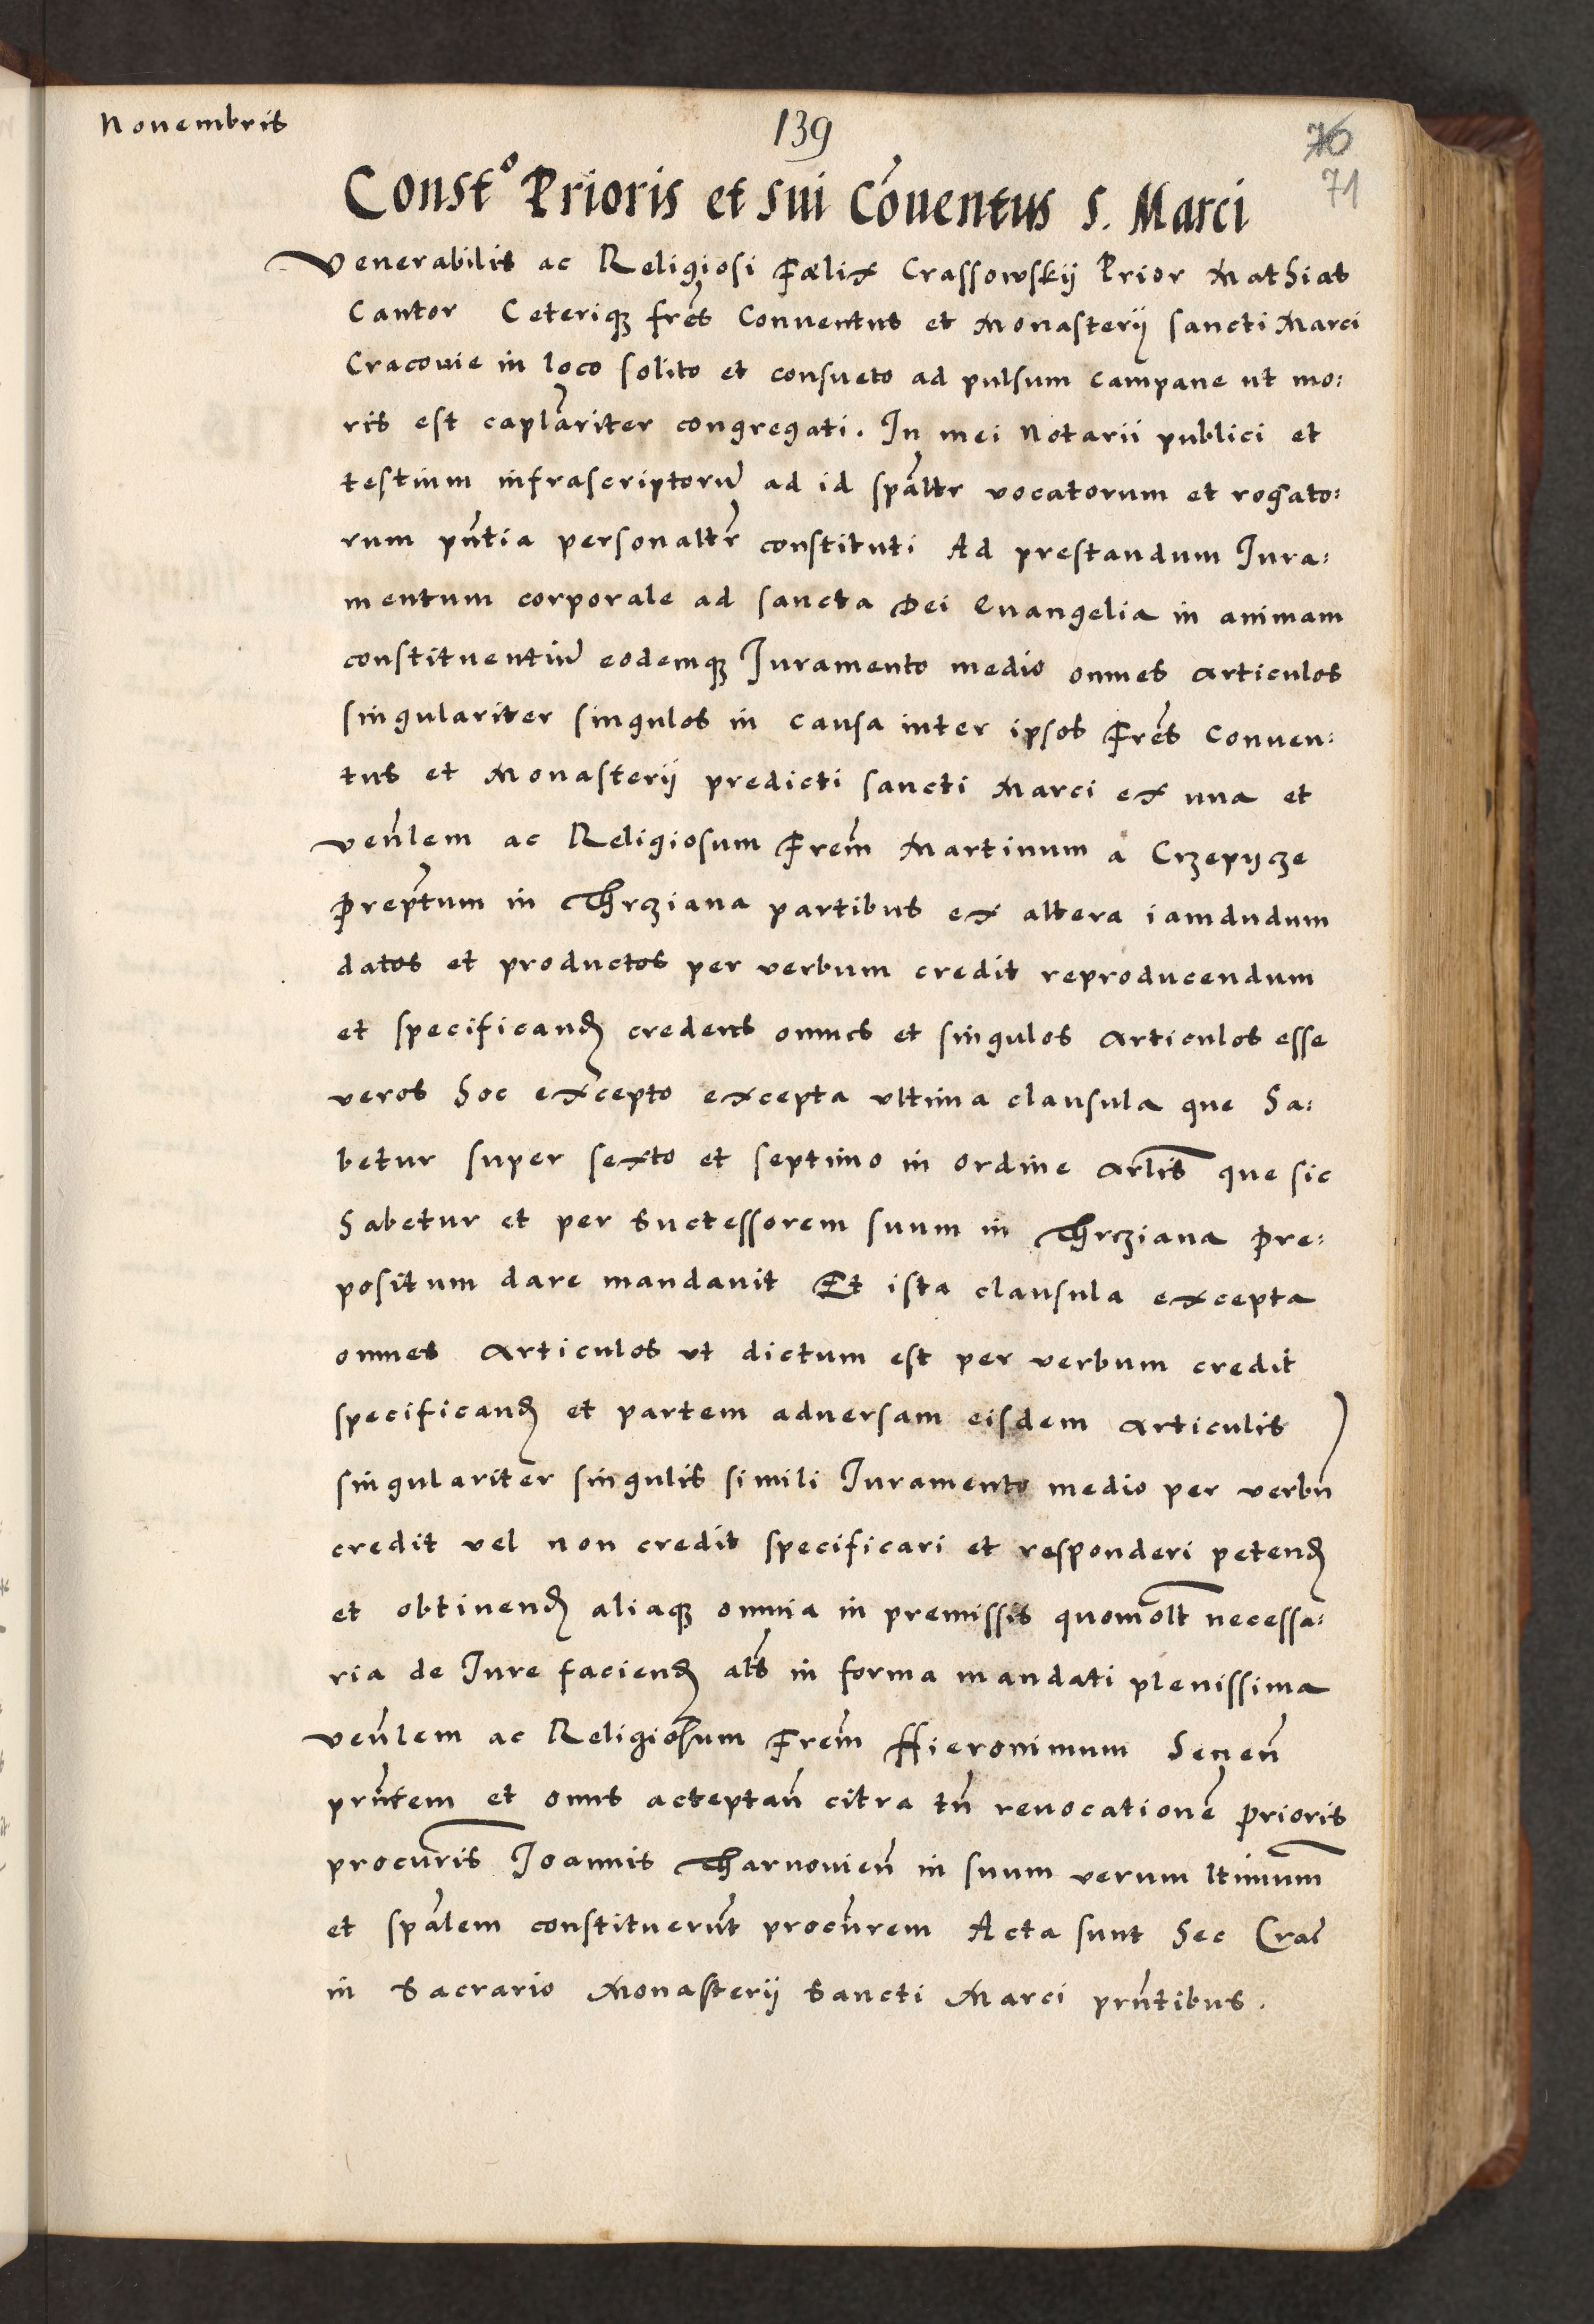 Novembris
139
76
71
Const° Prioris et sui Cōventus S. Marci
Venerabilis ac Religiosi Fœlix Crassowskij Prior Mathias
Cantor Ceterique frēs Conventus et Monasterij sancti Marci
Cracovie in loco solito et consueto ad pulsum campane ut mo:
ris est caplāriter congregati. In mei Notarii publici et
testium infrascriptorū ad id spāltr vocatorum et rogato:
rum pn̄tia personaltr̄ constituti Ad prestandum Iura:
mentum corporale ad sancta Dei Evangelia in animam
constituentiū eodemque Iuramento medio omnes articulos
singulariter singulos in causa inter ipsos Frēs Conven:
tus et Monasterij predicti sancti Marci ex una et
ven̄lem ac Religiosum Frēm Martinum à Crzepycze
Prep̄tum in Thrcziana partibus ex altera iamdudum
datos et productos per verbum credit reproducendum
et specificand̄ credens omnes et singulos articulos esse
veros hoc excepto excepta ultima clausula que ha:
betur super sexto et septimo in ordine artl̄is que sic
habetur et per successorem suum in Thrcziana Pre:
positum dare mandavit Et ista clausula excepta
omnes articulos ut dictum est per verbum credit
specificand̄ et partem adversam eisdem articulis
singulariter singulis simili Iuramento medio per verbū
credit vel non credit specificari et responderi petend̄
et obtinend̄ aliaque omnia in premissis quomolt̄ necessa:
ria de Iure faciend̄ alīs in forma mandati plenissima
ven̄lem ac Religiosum Frēm Hieronimum Senen̄
prn̄tem et onus acceptan̄ citra tn̄ revocationē Prioris
procur̄is Ioannis Tharnovien̄ in suum verum ltimum̄
et spālem constituerūt procūrem Acta sunt hec Crac̄
in Sacrario Monasterij Sancti Marci prn̄tibus.